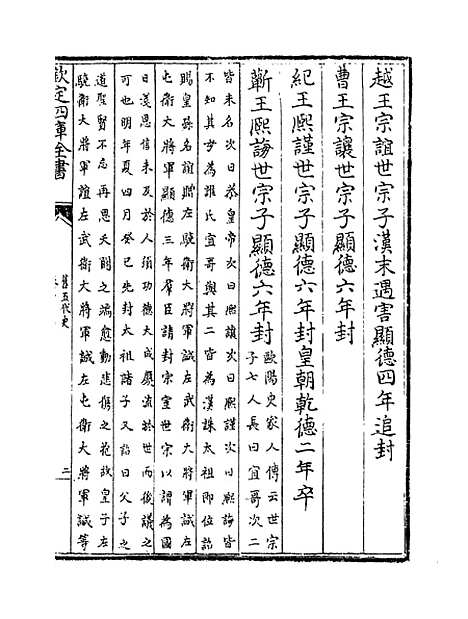 越王宗誼世宗子漢末遇害顯德四年追封
曹王宗讓世宗子顯德六年封
紀王熙謹世宗子顯德六年封皇朝乾德二年卒
蘄王熙誨世宗子顯德六年封
歐陽史家人傳云世宗
子七人長曰宜哥次二
皆未名次曰恭皇帝次曰熙讓次曰熙謹次曰熙誨皆
不知其母為誰氏宜哥與其二皆為漢誅太祖即位詔
賜皇孫名誼贈左驍衛大將軍誠左武衛大將軍諴左
屯衛大將軍顯德三年羣臣請封宗室世宗以謂為國
日淺恩信未及於人須功德大成慶流於世而後議之
可也明年夏四月癸巳先封太祖諸子又詔曰父子之
道聖賢不忘再思夭閼之端愈動悲傷之抱故皇子左
驍衛大將軍誼左武衛大將軍誠左屯衛大將軍諴等
欽定四庫全書
舊五代史
二